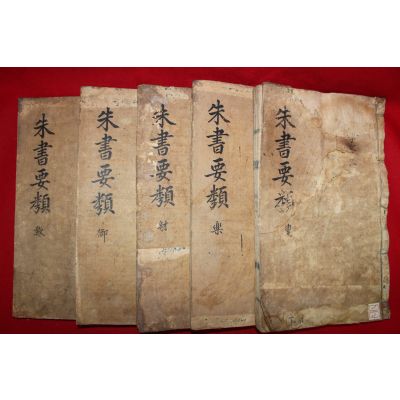 朱書要類
朱書要類 樂
朱書要類 射
朱書要類 御
朱書要類 數